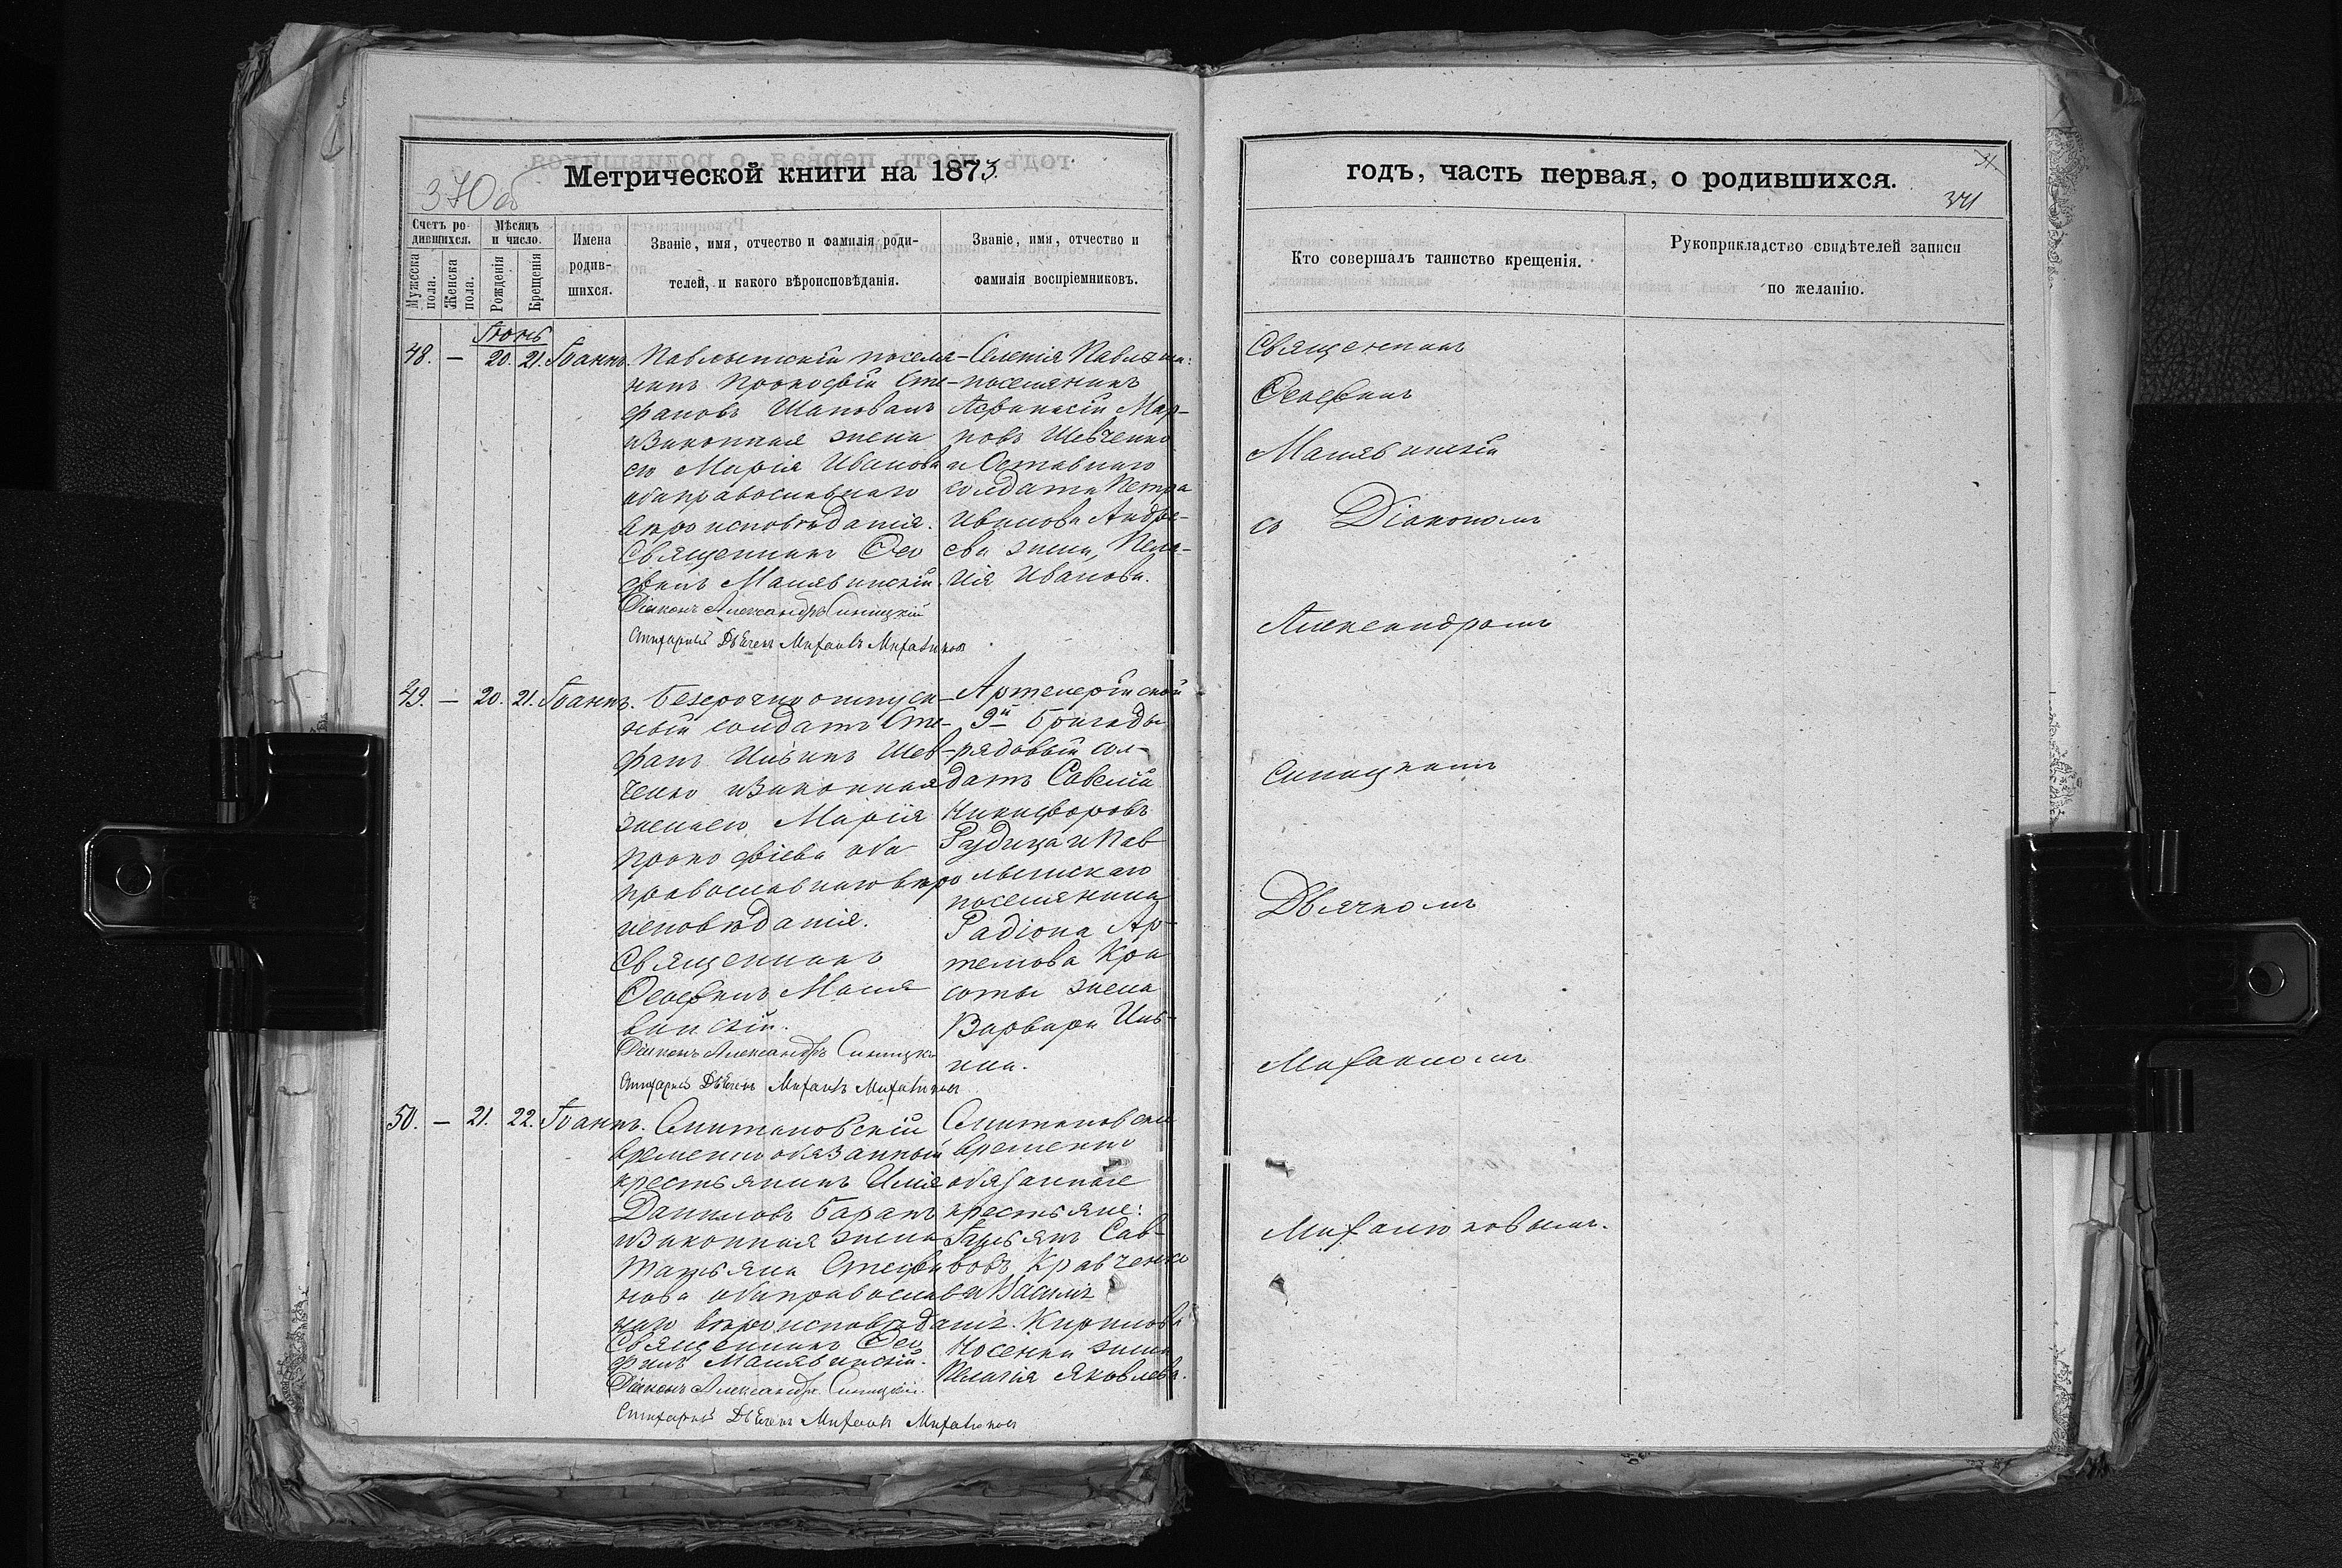 370 об
Метрической книги на 1873.
Счетъ родившихся.
Мужеска пола.
Женска пола.
Мѣсяцъ и число.
Рожденія
Крещенія
Имена родившихся.
Званіе, имя, отчество и фамилія родителей, и какого вѣроисповѣданія.
Званіе, имя, отчество и фамилія воспріемниковъ.
Іюнь
48. — 20. 21. Іоаннъ.
Павлышскій поселя-
нинъ Прокофій Сте-
фановъ Шаповалъ
изаконная жена
его Марія Иванова
оба православнаго
вѣроисповѣданія.
Священникъ Ѳео
филъ Малявинскій.
Діаконъ Александръ Синицкій
Стихарный Дьячекъ Михаилъ Михалюковъ
Селенія Павлыша:
поселянинъ
Афанасій Мар-
ковъ Шевченко
и Оставнаго
солдата Петра
Иванова Андре-
ева жена, Пела-
гія Иванова.
49. — 20. 21. Іоаннъ.
Безсрочно отпуск-
ный солдатъ Сте-
фанъ Ильинъ Шев-
ченко изаконная
жена его Марія
Прокофіева оба
православнаго вѣро
исповѣданія.
Священникъ
Ѳеофилъ Маля
винскій.
Діаконъ Александръ Синицкій
Стихарный Дьячекъ Михаилъ Михалюковъ
Артелерійской
9й бригады
рядовый сол-
датъ Савелій
Никифоровъ
Рудица и Пав
лышскаго
поселянина
Радіона Ар-
темова Кра
соты жена
Варвара Иль-
ина.
50. — 21. 22. Іоаннъ.
временно обязанный
крестьянинъ Илія
Даниловъ Баранъ
изаконная жена
Татьяна Стефа
нова оба православ
наго вѣроисповѣданія.
Священникъ Ѳео
филъ Малявинскій.
Діаконъ Александръ Синицкій.
Стихарный Дьячекъ Михаилъ Михалюковъ
временно
обязанные
крестьяне:
Сав-
вовъ Кравченко
и Василія
Кирилова
Носенка жена
Пелагія Яковлева.
годъ, часть первая, о родившихся.
371
Кто совершалъ таинство крещенія.
Рукоприкладство свидѣтелей записи по желанію.
Священникъ
Ѳеофилъ
Малявинскій
съ Діакономъ
Александромъ
Синицкимъ
Дьячкомъ
Михаиломъ
Михалюковымъ.